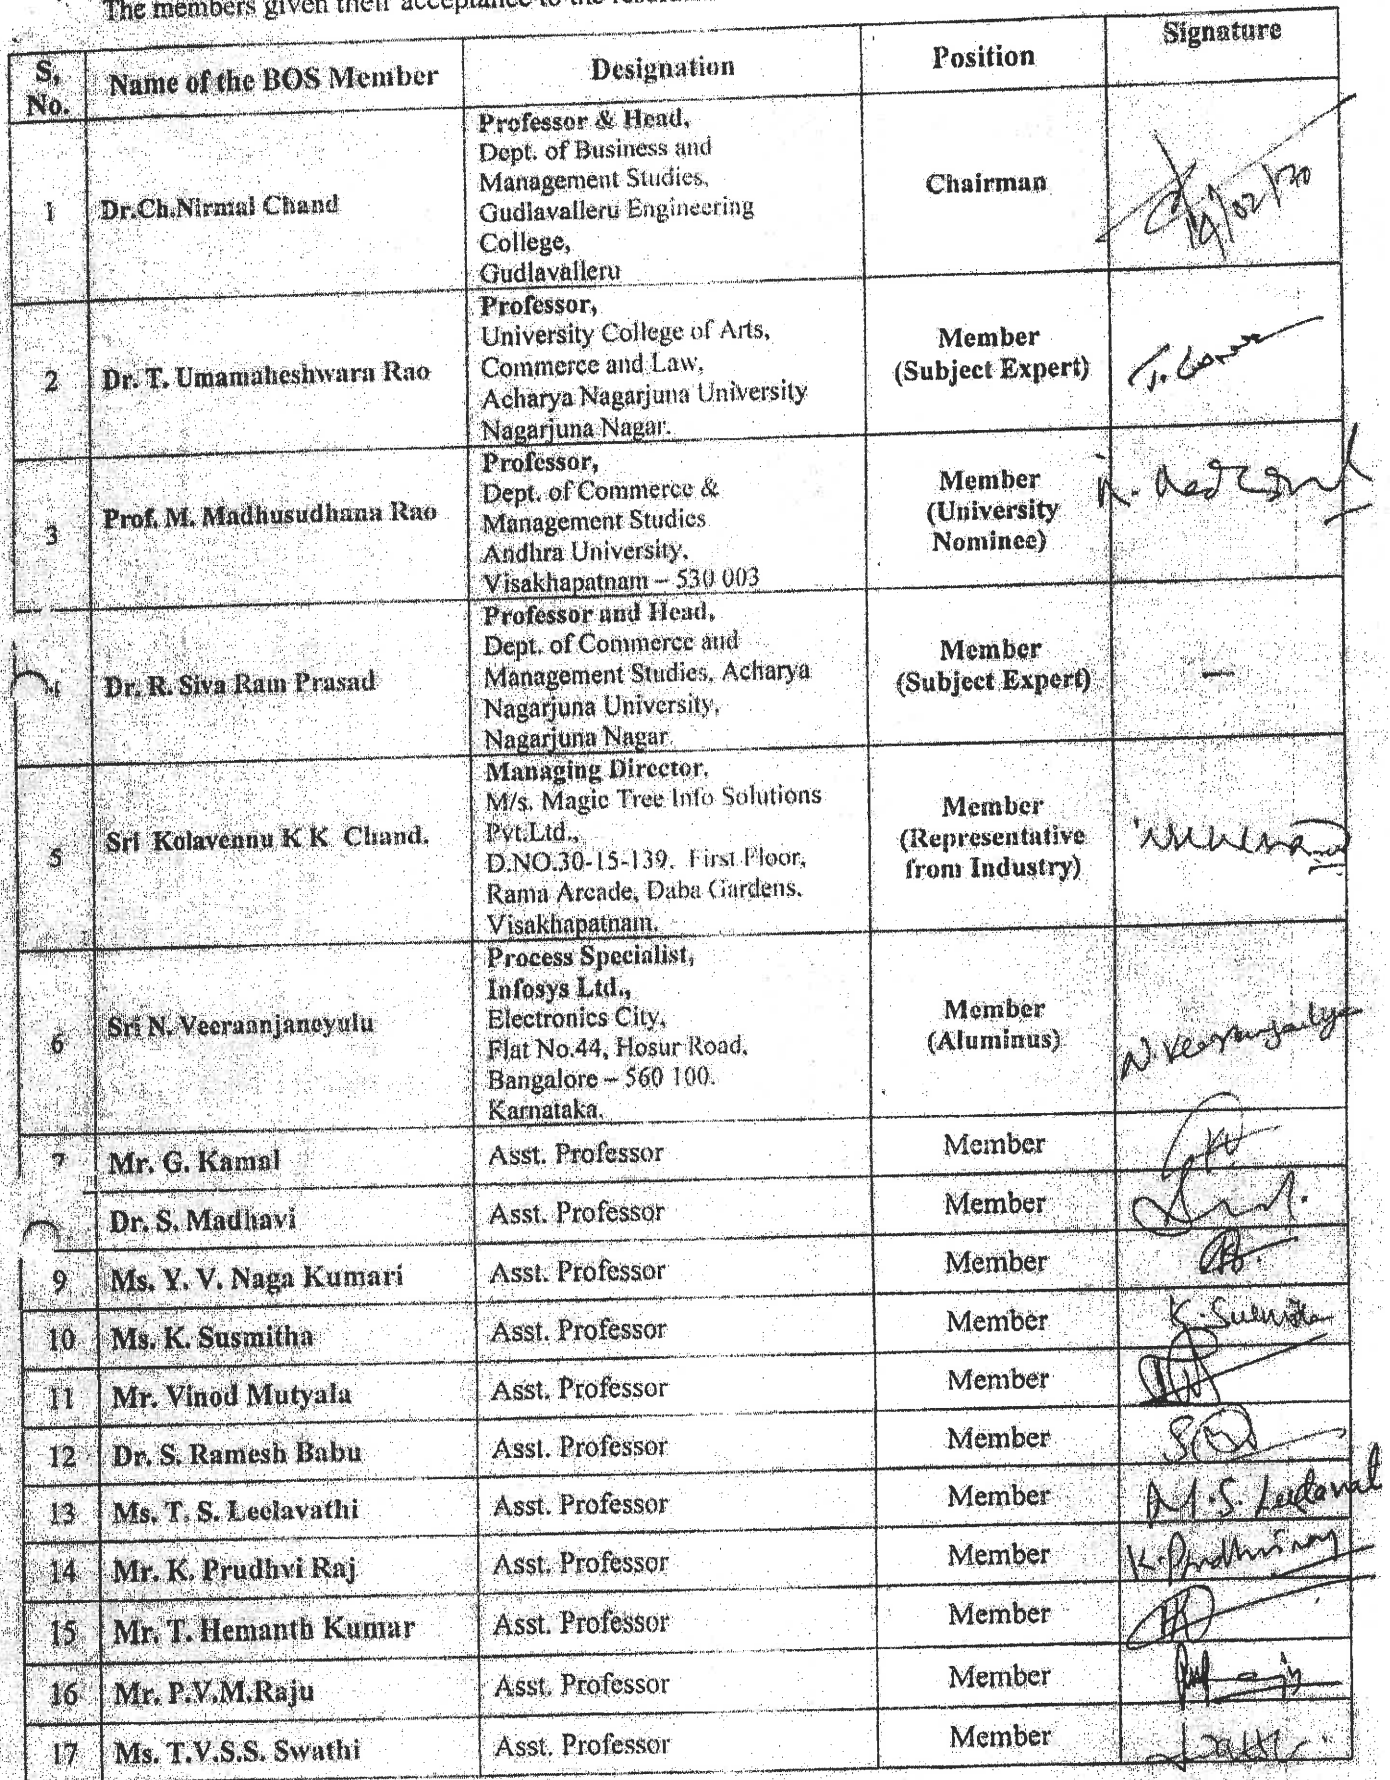 The members given their acceptance to the
S. No. Name of the BOS Member Designation Position Signature
1 Dr.Ch.Nirmal Chand Chairman
Professor & Head,
Dept. of Business and
Management Studies,
Gudlavalleru Engineering
College,
Gudlavalleru
19/02/20
2 Dr. T. Umamaheshwara Rao
Professor,
University College of Arts,
Commerce and Law,
Acharya Nagarjuna University
Nagarjuna Nagar.
Member
(Subject Expert)
3 Prof. M. Madhusudhana Rao
Professor,
Dept. of Commerce &
Management Studies
Andhra University,
Visakhapatnam – 530 003
Member
(University
Nominee)
4 Dr. R. Siva Ram Prasad
Professor and Head,
Dept. of Commerce and
Management Studies, Acharya
Nagarjuna University,
Nagarjuna Nagar
Member
(Subject Expert)
—
5 Sri Kolavennu K K Chand.
Managing Director,
M/s. Magic Tree Info Solutions
Pvt.Ltd.,
D.NO.30-15-139. First Floor,
Rama Arcade, Daba Gardens.
Visakhapatnam.
Member
(Representative
from Industry)
6 Sri N. Veeraanjaneyulu
Process Specialist,
Infosys Ltd.,
Electronics City,
Flat No.44, Hosur Road,
Bangalore – 560 100.
Karnataka.
Member
(Aluminus)
7 Mr. G. Kamal Asst. Professor Member
Dr. S. Madhavi Asst. Professor Member
9 Ms. Y. V. Naga Kumari Asst. Professor Member
10 Ms. K. Susmitha Asst. Professor Member
11 Mr. Vinod Mutyala Asst. Professor Member
12 Dr. S. Ramesh Babu Asst. Professor Member
13 Ms. T. S. Leelavathi Asst. Professor Member
14 Mr. K. Prudhvi Raj Asst. Professor Member K. Prudhviraj
15 Mr. T. Hemanth Kumar Asst. Professor Member
16 Mr. P.V.M.Raju Asst. Professor Member
17 Ms. T.V.S.S. Swathi Asst. Professor Member